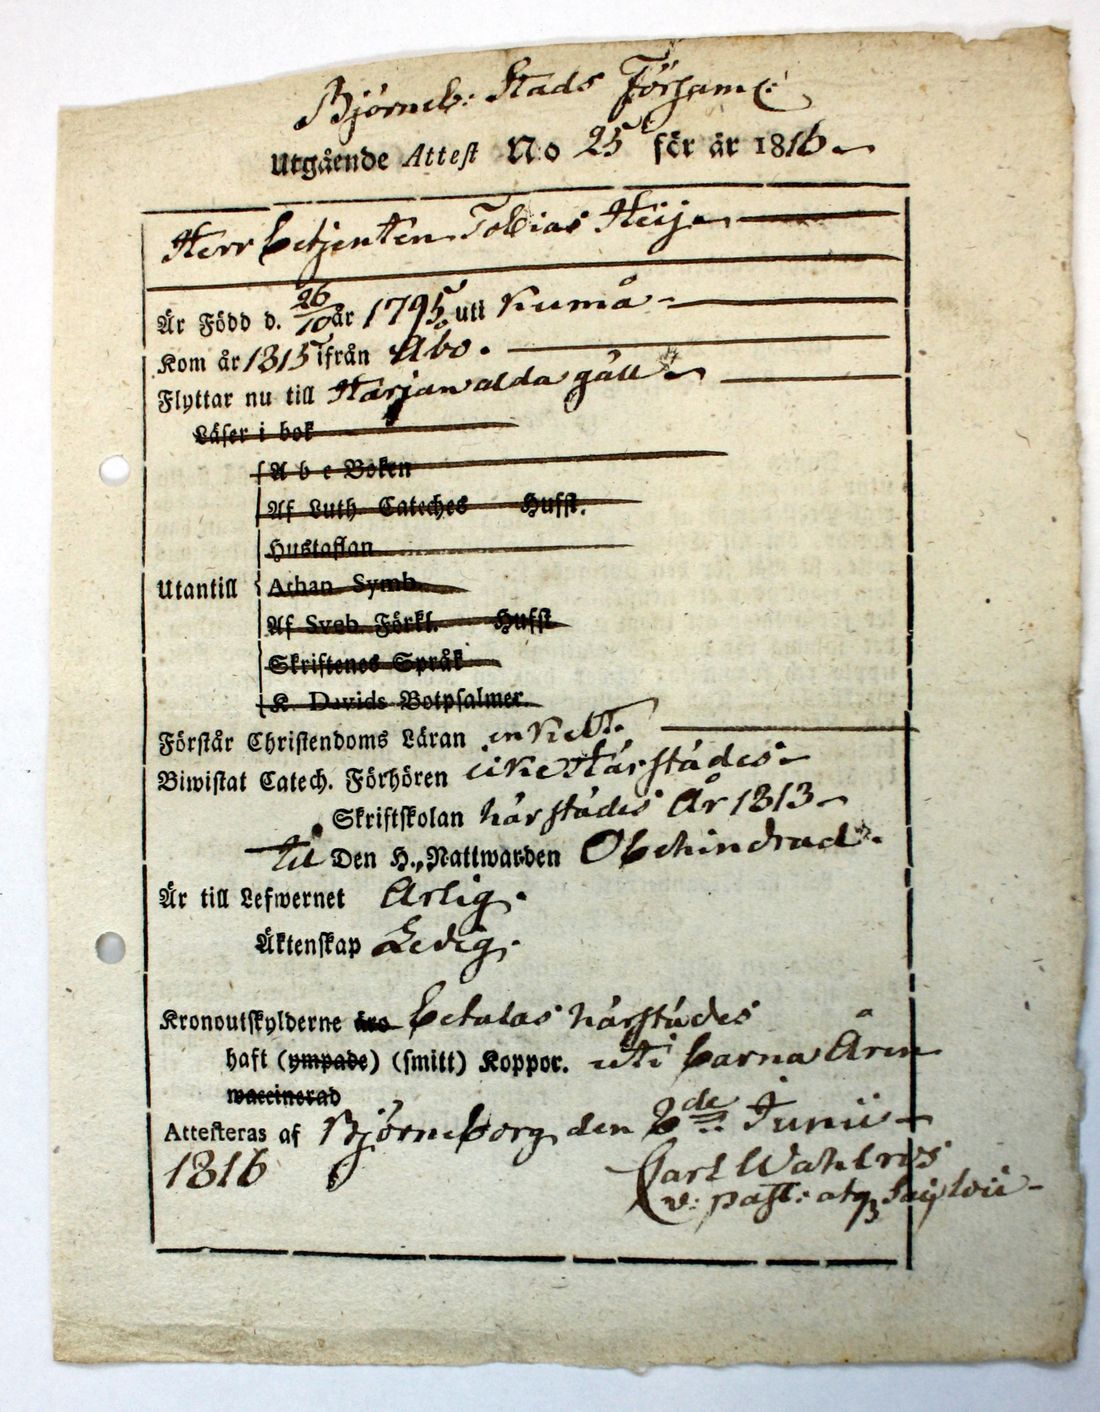 Björneb: Stads Församl:
Utgående Attest No 25 för år 1816
Herr betjenten Tobias Heije
Är Född d. 26/10 år 1795 uti Kumå
Kom år 1815 ifrån Åbo.
Flyttar nu till Harjanvalda gäll
Läser i bok
A b c Boken
Af Luth. Cateches Hufst.
Hustaflan
Utantill Athan. Symb.
Af Sveb. Förkl. Hufst
Skriftenes Språk
K. Davids Botpsalmer.
Förstår Christendoms Läran enkelt.
Biwistat Catech. Förhören icke härstädes
Skriftskolan härstädes År 1813
till Den H. Nattwarden Obehindrad.
Är till Lefwernet Ärlig.
Äktenskap Ledig.
Kronoutskylderne äro betalas härstädes
haft (ympade) (smitt) Koppor. uti barna Åren
waccinerad
Attesteras af Björneborg den 6de Junii
1816
Carl Wahlroos
v: past: